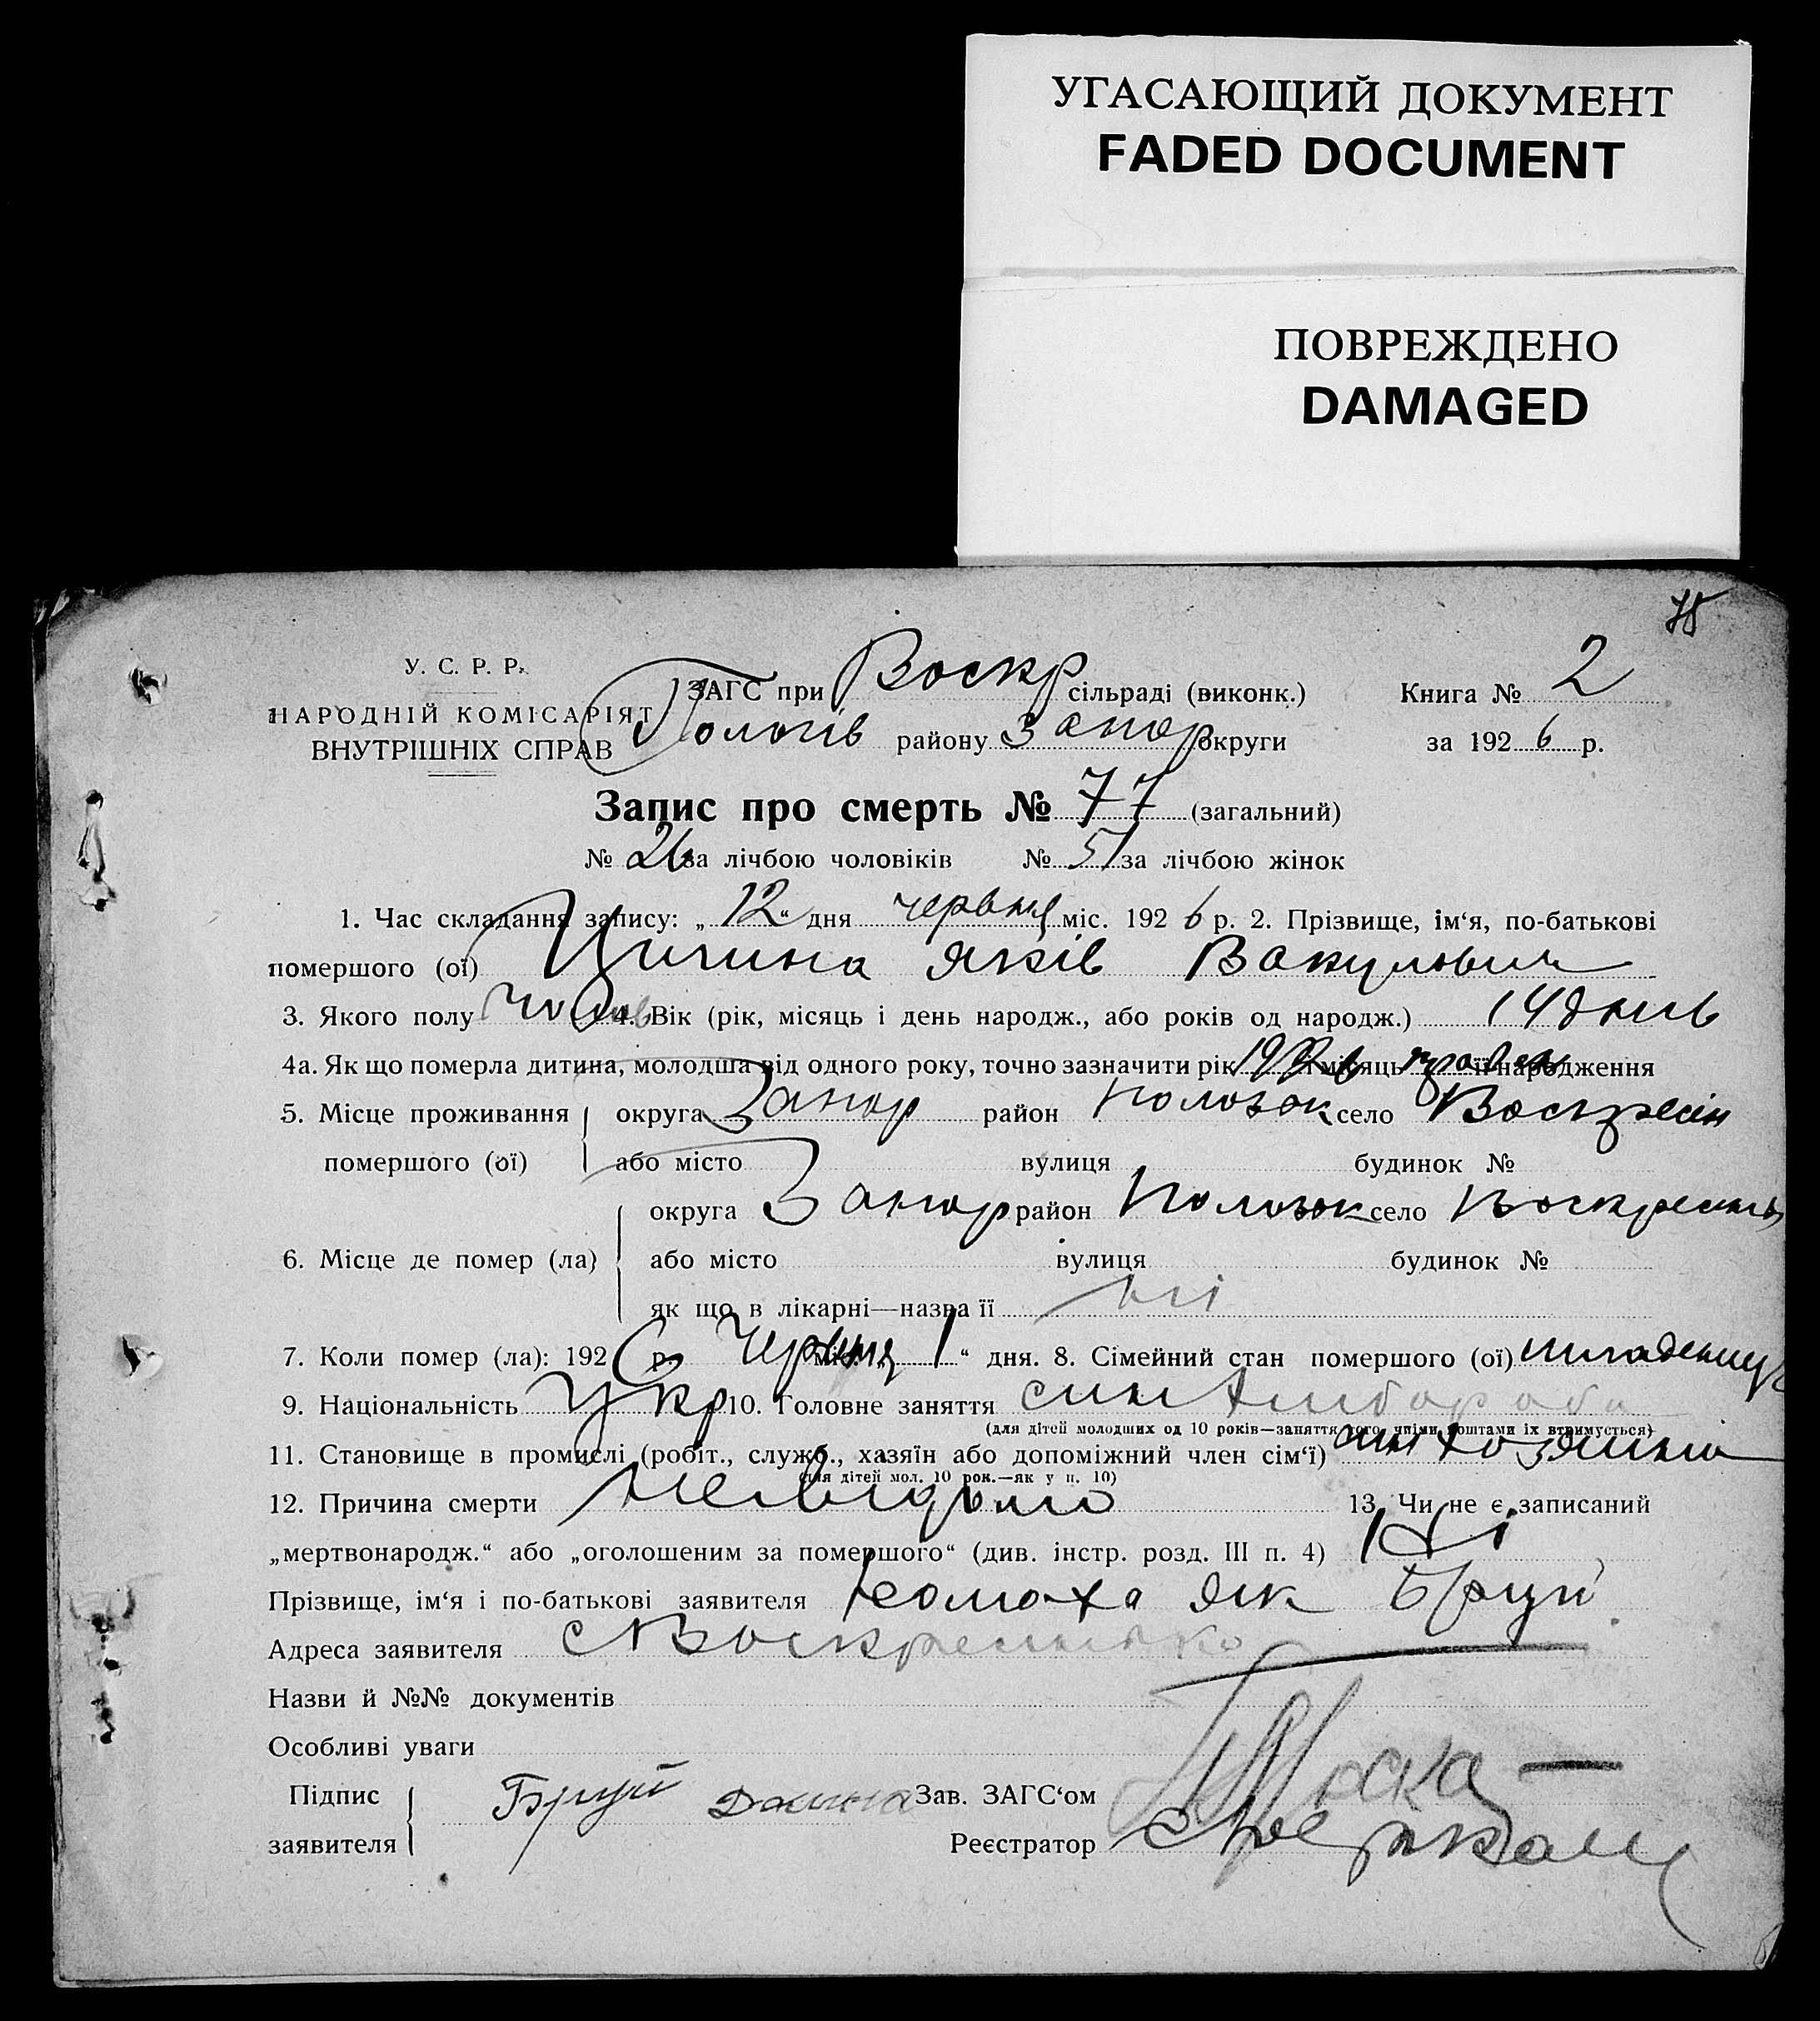 УГАСАЮЩИЙ ДОКУМЕНТ
FADED DOCUMENT
ПОВРЕЖДЕНО
DAMAGED
У. С. Р. Р.
НАРОДНІЙ КОМІСАРІЯТ
ВНУТРІШНІХ СПРАВ
ЗАГС при Воскр сільраді (виконк.)
Пологів району Запор округи
Книга № 2
за 1926 р.
Запис про смерть № 77 (загальний)
№ 26 за лічбою чоловіків № 51 за лічбою жінок
1. Час складання запису: „12“ дня червня міс. 1926 р. 2. Прізвище, ім‘я, по-батькові
помершого (ої) Яків Вакулович
3. Якого полу чолов 4. Вік (рік, місяць і день народж., або років од народж.) 14 днів
4а. Як що померла дитина, молодша від одного року, точно зазначити рік 1926 і місяць її народження
5. Місце проживання помершого (ої) округа Запор район Пологок село Воскресін
або місто вулиця будинок №
6. Місце де помер (ла) округа Запор район Пологок село
або місто вулиця будинок №
як що в лікарні—назва її ні
7. Коли помер (ла): 1926 р. Червня міс. „1“ дня. 8. Сімейний стан помершого (ої)
9. Національність Укр 10. Головне заняття син хлібороба
(для дітей молодших од 10 років—заняття того, чиїми коштами їх втримується)
11. Становище в промислі (робіт., служб., хазяїн або допоміжний член сім‘ї) син
(для дітей мол. 10 рок.—як у п. 10)
12. Причина смерти невідомо 13. Чи не є записаний
„мертвонародж.“ або „оголошеним за помершого“ (див. інстр. розд. III п. 4) Ні
Прізвище, ім‘я і по-батькові заявителя як Бруй
Адреса заявителя с Воскресінка
Назви й №№ документів
Особливі уваги
Підпис заявителя Бруй Зав. ЗАГС‘ом
Реєстратор